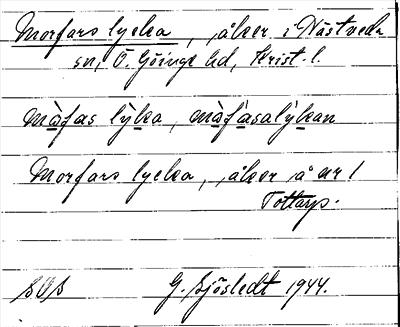 Morfars lycka, åker i Nästveda
sn, Ö. Göinge hd, Krist. l.
màfas lỳka, màfàsalỳkan
Morfars lycka, åker å nr 1
Tottarp.
SOS G. Sjöstedt 1944.